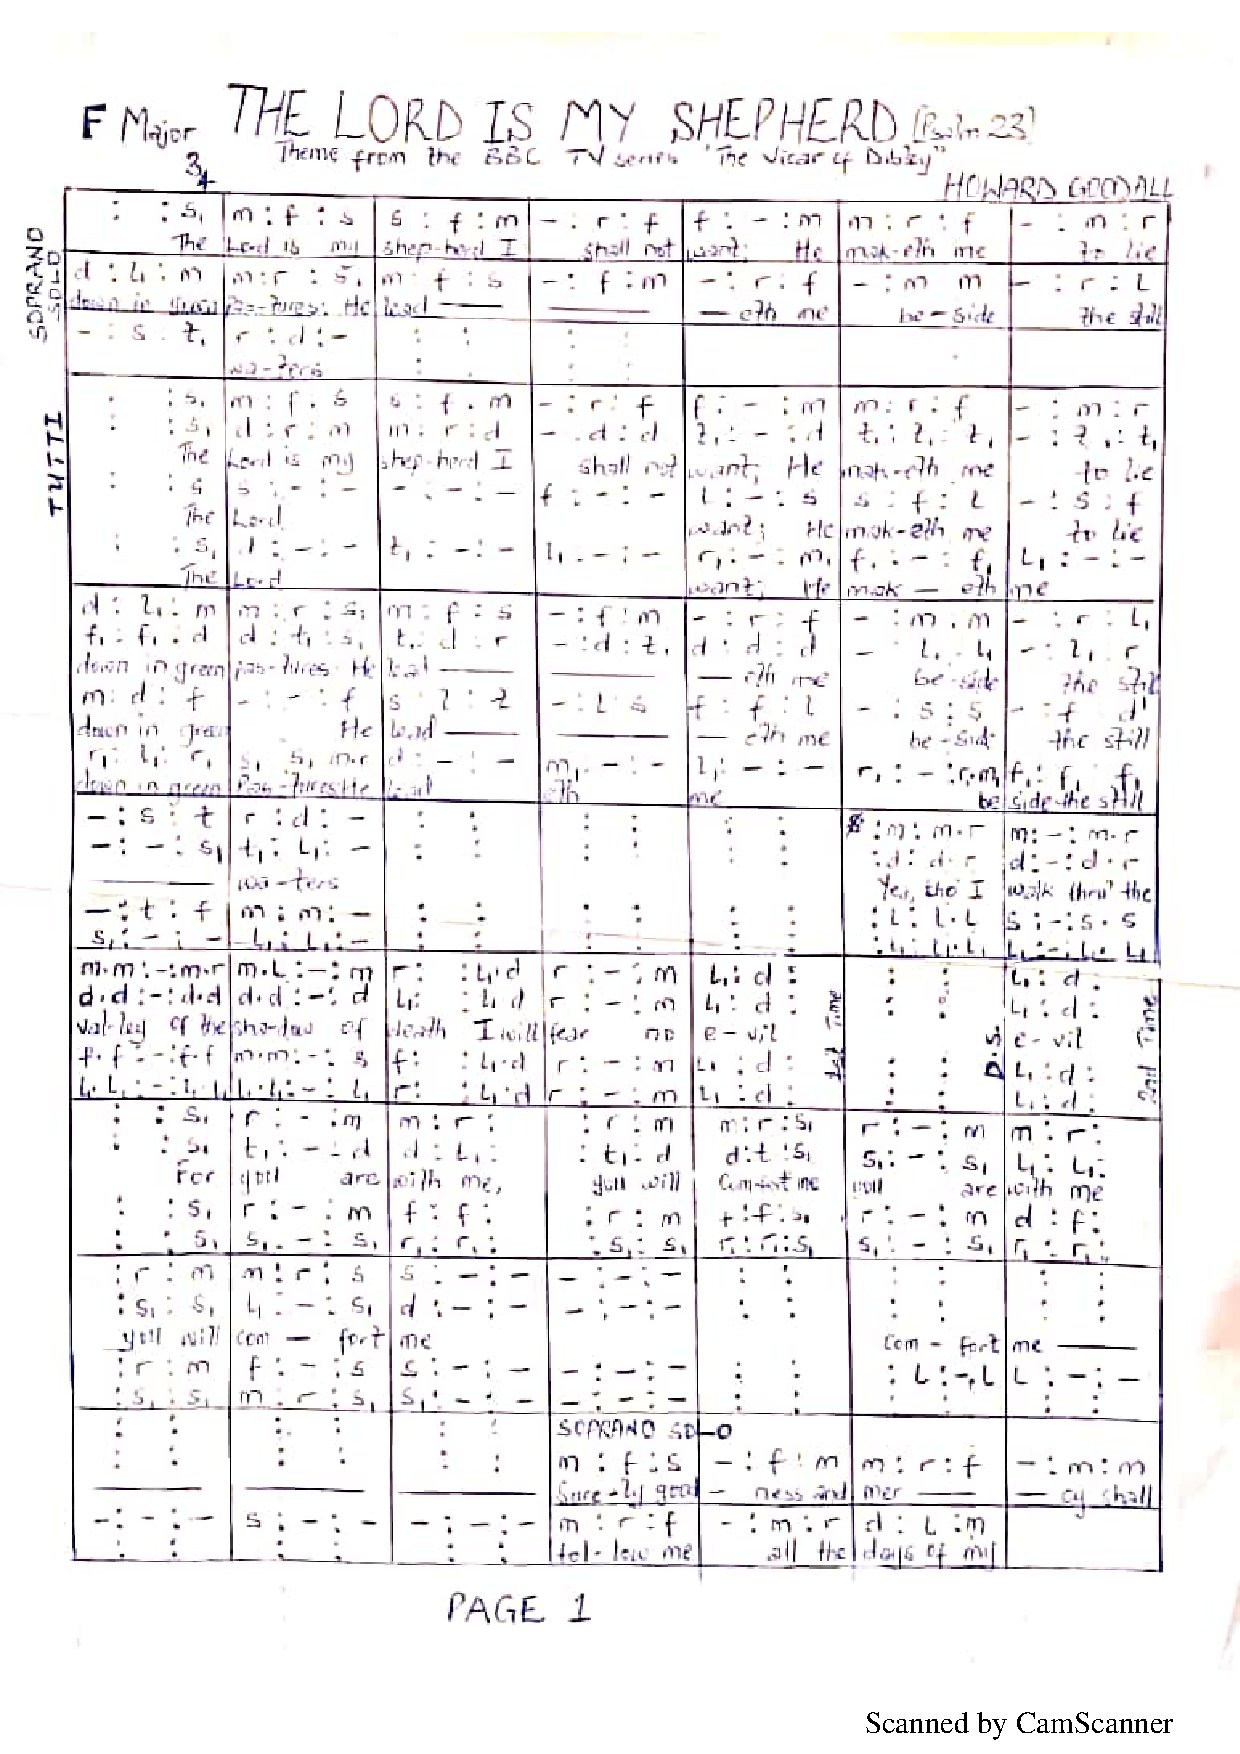 F Major THE LORD IS MY SHEPHERD [Psalm 23]
3/4 Theme from the BBC TV series "The Vicar of Dibley"
HOWARD GOODALL
SOPRANO SOLO
: : s, | m : f : s | s : f : m | - : r : f | f : - : m | m : r : f | - : m : r
The Lord is my shep-herd I shall not want; He mak-eth me to lie
d : l, : m | m : r : s, | m : f : s | - : f : m | - : r : f | - : m m | - : r : L
down in green pas-tures: He lead — — — eth me be-side the still
- : s : t, | r : d : - | : : | : :
wa-ters
TUTTI
: : s, | m : f . s | s : f . m | - : r : f | f : - : m | m : r : f | - : m : r
: : s, | d : r : m | m : r : d | - . d : d | t, : - : d | t, : t, : t, | - : t, : t,
The Lord is my shep-herd I shall not want; He mak-eth me to lie
: : s | s : - : - | - : - : - | f : - : - | l : - : s | s : f : L | - : s : f
The Lord want; He mak-eth me to lie
: : s, | : - : - | t, : - : - | l, . - : - | r, : - : m, | f, : - : f, | L, : - : -
The Lord want; He mak — eth me
d : l, : m | m : r : s, | m : f : s | - : f : m | - : r : f | - : m . m | - : r : L,
f, : f, : d | d : t, : s, | t, : d : r | - : d : t, | d : d : d | - L, . L, | - : l, : r
down in green pas-tures He lead — — — eth me be-side the still
m : d : f | - : - : f | s : l : t | - : L : s | f : f : L | - : s : s | - : f d'
down in green He lead — — — eth me be-side the still
r, : l, : r, | s, s, m.r | d : - : - | m, . - : - | l, : - : - | r, : - : r.m, | f, : f, f,
down in green Pas-tures He lead eth me be side the still
- : s : t | r : d : - | : : | : : | : : | : m : m . r | m : - : m . r
- : - : s, | t, : L, : - | : : | : : | : : | : d : d . r | d : - : d . r
— wa-ters Yes, tho' I walk thru' the
- : t : f | m : m : - | : : | : : | : : | : L : L . L | s : - : s . s
s, : - : - | L, : L, : - | : : | : : | : : | : L, : L, . L, | L, : - : L, . L,
m.m : - : m.r | m.L : - : m | r : : L,.d | r : - : m | L, : d : | : : | L, : d .
d.d : - : d.d | d.d : - : d | L, : : L, d | r : - : m | L, : d : | : : | L, : d :
val-ley of the sha-dow of death I will fear no e-vil 1st Time D.S. e-vil 2nd Time
f.f : - : f.f | m.m : - : s | f : : L,.d | r : - : m | L, : d : | : : | L, : d :
L, L, : - : L, . L, | L, : L, : - : L, | r : : L, : d | r : - : m | L, : d : | : : | L, : d :
: : s, | r : - : m | m : r : | : r : m | m : r : s, | r : - : m | m : r :
: : s, | t, : - : d | d : L, : | : t, : d | d : t : s, | s, : - : s, | L, : L, :
For you are with me, you will Comfort me you are with me
: : s, | r : - : m | f : f : | : r : m | : f : s, | r : - : m | d : f :
: : s, | s, . - : s, | r, : r, : | : s, : s, | r, : r, : s, | s, : - : s, | r, : r, :
: r : m | m : r : s | s : - : - | - : - : - | : : | : : | : :
: s, : s, | L, : - : s, | d : - : - | - : - : - | : : | : : | : :
you will com — fort me com - fort me —
: r : m | f : - : s | s : - : - | - : - : - | : : | : L : - , L | L : - : -
: s, : s, | m : r : s, | s, : - : - | - : - : - | : : | : : | : :
SOPRANO SOLO
: : | : : | : : | m : f : s | - : f : m | m : r : f | - : m : m
— — — Sure-ly good - ness and mer — — cy shall
- : - : - | s : - : - | - : - : - | m : r : f | - : m : r | d : L : m
: : | : : | : : | fol-low me all the days of my
PAGE 1
Scanned by CamScanner